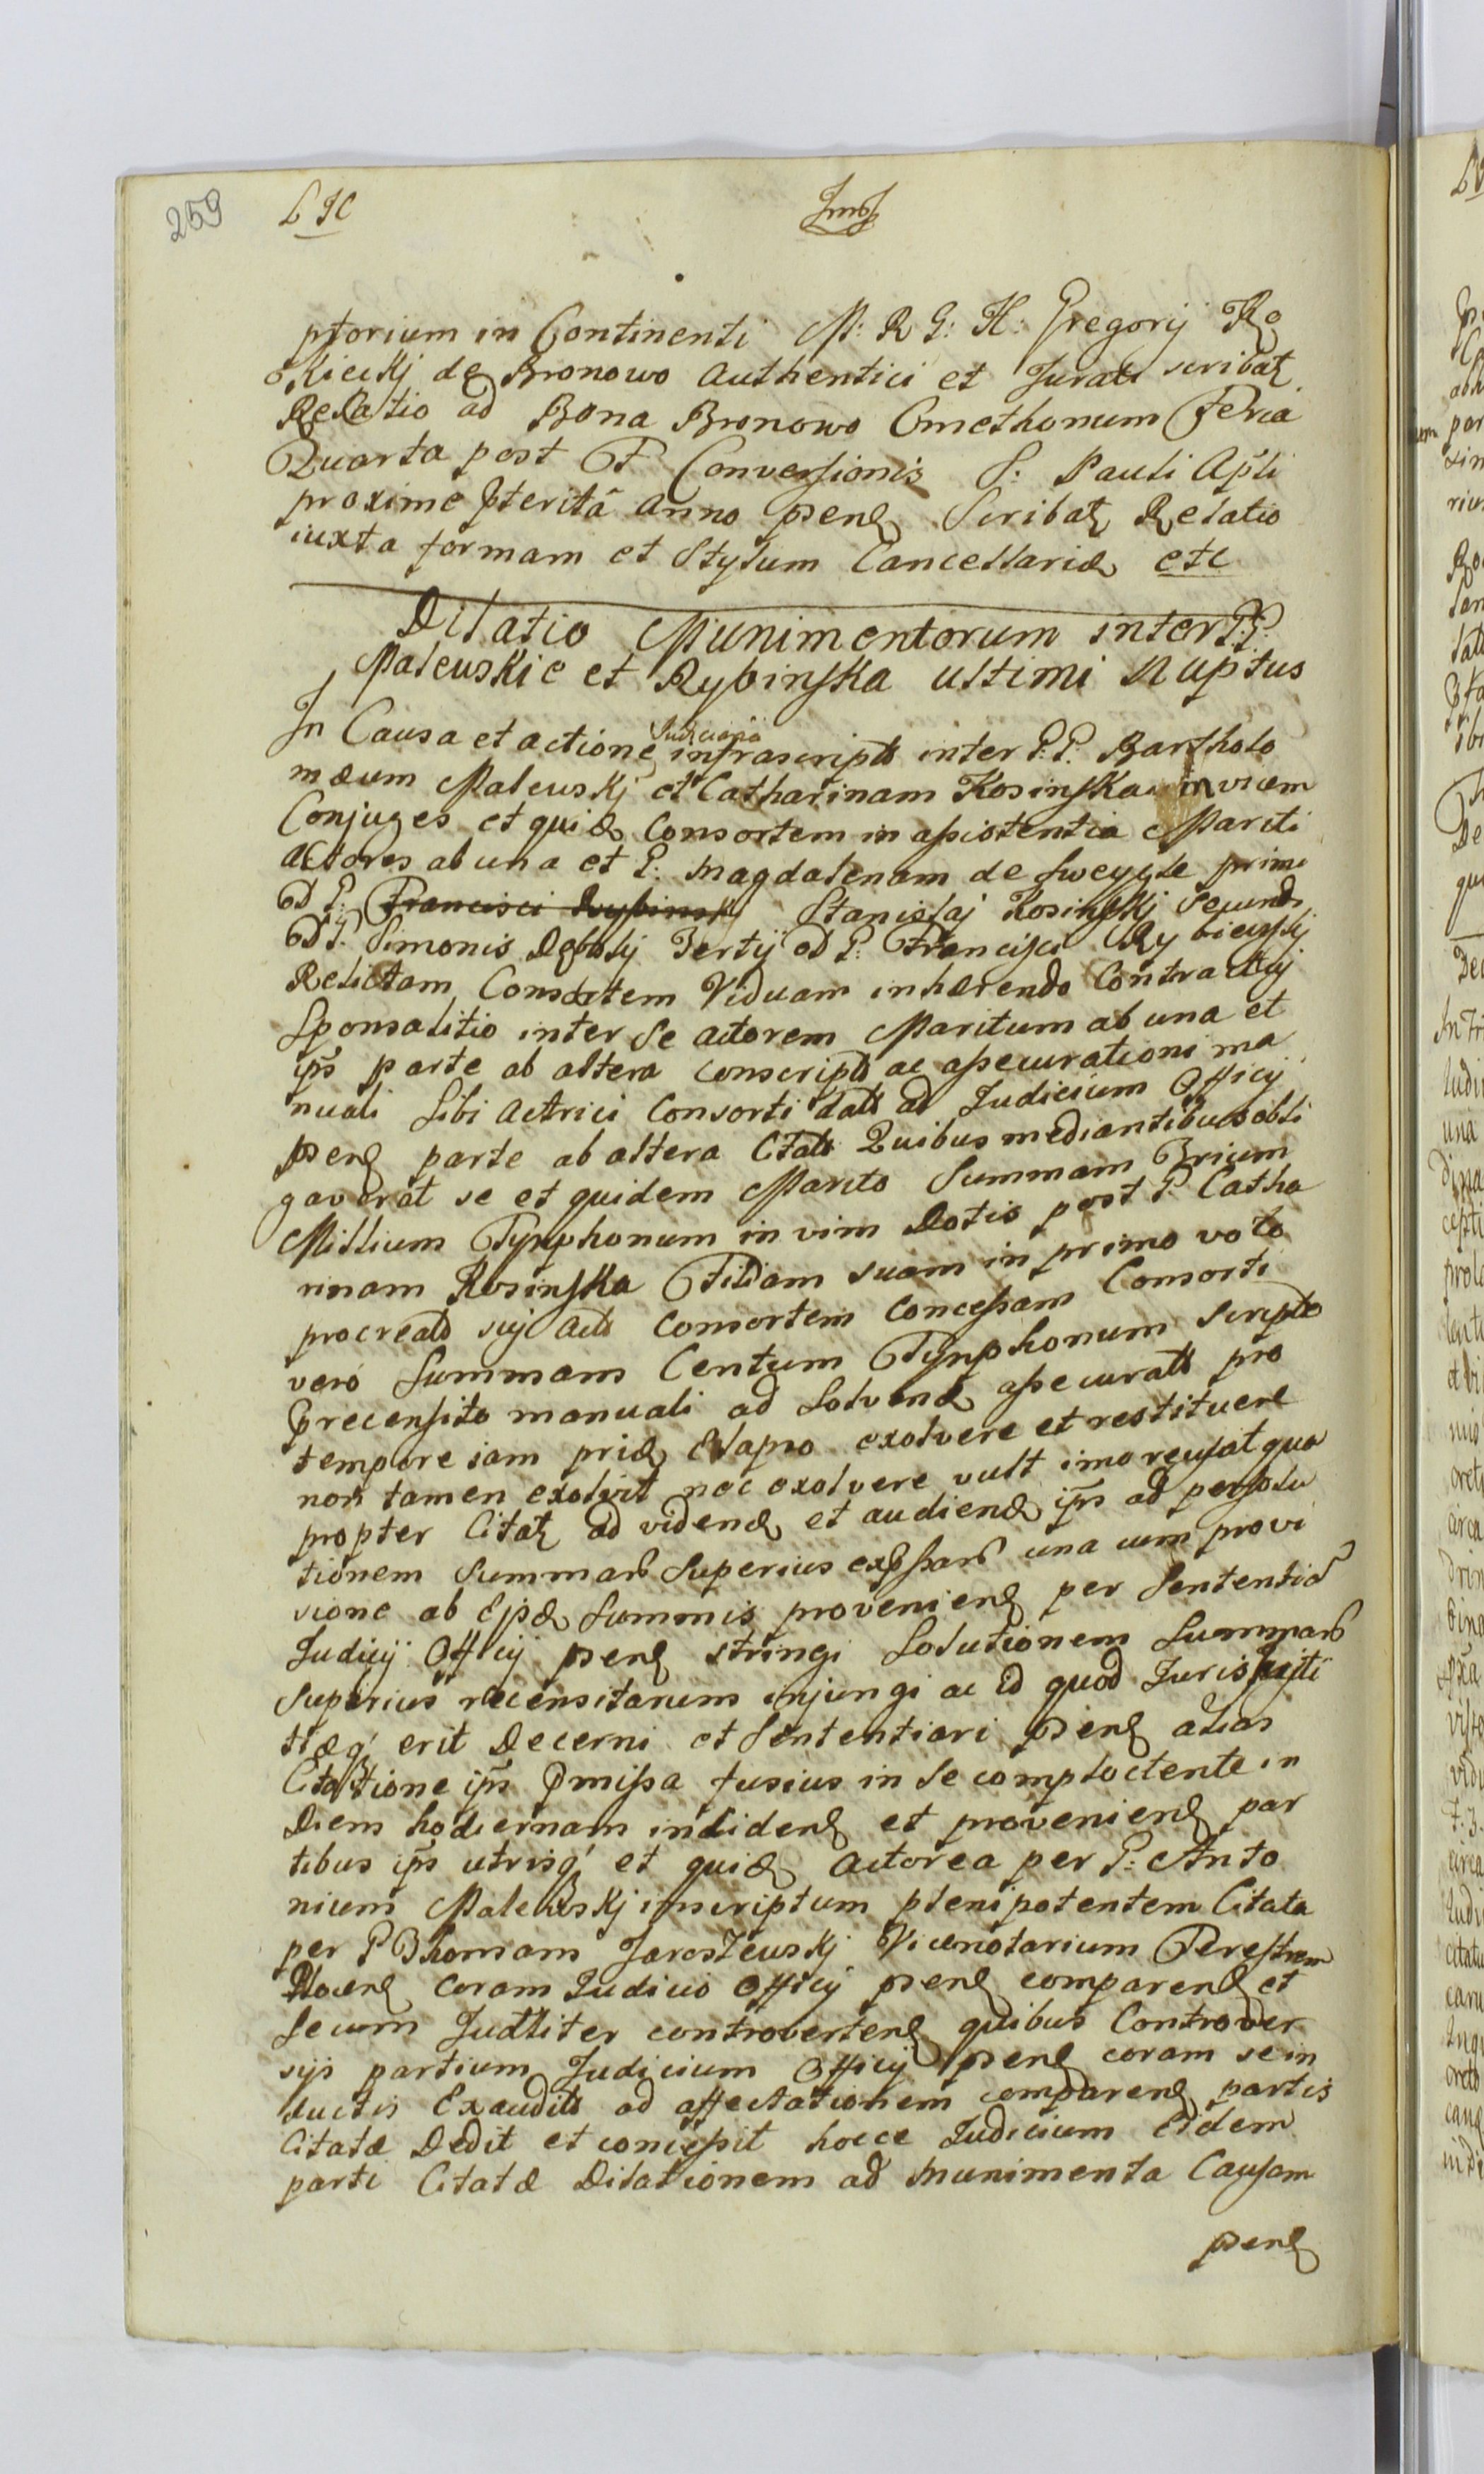 259 LJC
ptorium in Continenti M: R G: H: Gregorij Ro
kickj de Bronowo Authentici et Jurati scribat
Relatio ad Bona Bronowo Cmethonum Feria
Quarta post F Conversionis S: Pauli Apli
proxime pterita Anno psen Scribat Relatio
iuxta formam et Stylum Cancellariæ etc
Dilatio Munimentorum inter P.P.
Maleuskie et Rybinska ultimi Nuptus
In Causa et actione Judiciaria infrascripta inter P.P. Bartholo
mæum Maleuskj et Catharinam Kosinska invicem
Conjuges et quid Consortem in assistentia Mariti
Actores ab una et P: Magdalenam de primi
od P: Francisci Rybinskj Stanislaj Kosinskj Secundi
od P. Simonis Tertij od P: Francisci
Relictam Consortem Viduam inhærendo Contractuj
Sponsalitio inter Se actorem Maritum ab una et
ips parte ab altera conscripto ac assecurationi ma
nuali Sibi Actrici Consorti dato ad Judicium Officij
psen parte ab altera Citato Quibus mediantibus obli
gaverat se et quidem Marito Summam Trium
Millium Tynphonum in vim Dotis post P. Catha
rinam Kosinska Filiam suam in primo voto
procreato suj acto Consortem Concessam Consorti
vero Summam Centum Tynphonum Scripto
precensito manuali ad Solvend assecurato pro
tempore iam prid Elapso exolvere et restituere
non tamen exolvit nec exolvere vult imo recusat qua
propter Citat ad vidend et audiend ips ad persolu
tionem Summar Superius expssar una cum provi
sione ab Eisd Summis provenien per Sententia
Judicij Officij psen stringi Solutionem Summar
Superius recensitarum injungi ac id quod Juris
erit Decerni et Sententiari psen alias
Citatione ips pmissa fusius in Se complectente in
Diem hodiernam inciden et provenien par
tibus ips utrisq et quid Actorea per P: Anto
nium Maleuskj inscriptum plenipotentem Citata
per P Thomam JarosZeuskj Vicenotarium
coram Judicio Officij psen comparen et
Secum Judtliter controverten quibus Controver
sijs partium Judicium Officij psen coram se in
ductis Exaudits ad affectationem comparen partis
Citatæ Dedit et concessit hocce Judicium Eidem
parti Citatæ Dilationem ad Munimenta Causam
psen